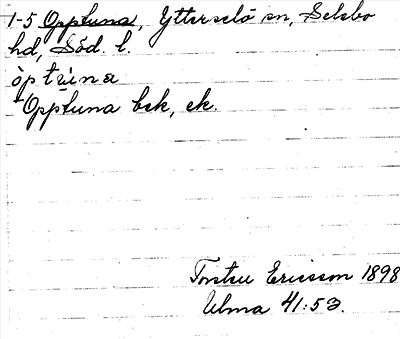 1-5 Opptuna, Ytterselö sn, Selebo
hd, Söd. l.
òptùna
Opptuna bsk, ek.
Torsten Ericsson 1898
Ulma 41:53.